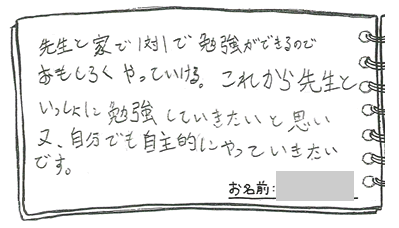 先生と家で1対1で勉強ができるので
おもしろくやっていける。これから先生と
いっしょに勉強していきたいと思い
又、自分でも自主的にやっていきたい
です。
お名前: